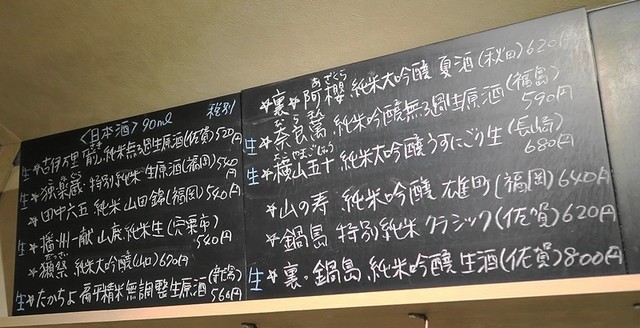 〈日本酒〉90ml 税別
生*古伊万里 前 純米無ろ過生原酒(佐賀)520円
生*独楽蔵 特別純米 生原酒(福岡)540円
*田中六五 純米 山田錦(福岡)540円
生*播州一献 山廃純米生(宍粟市)540円
だっさい
*獺祭 純米大吟醸(山口)690円
生*たかちよ 扁平精米無調整生原酒(新潟)560円
あざくら
*裏*阿櫻 純米大吟醸 夏酒(秋田)620円
生*奈良萬 純米吟醸無ろ過生原酒(福島)590円
よこやまごじゅう
生*横山五十 純米大吟醸うすにごり生(長崎)680円
*山の寿 純米吟醸 雄町(福岡)640円
*鍋島 特別純米 クラシック(佐賀)620円
生*裏・鍋島 純米吟醸 生酒(佐賀)800円